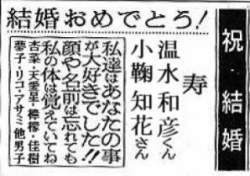 結婚おめでとう!
祝・結婚
寿
温水 和彦くん
小鞠 知花さん
私達はあなたの事
が大好きでした!!
顔や名前は忘れても
私の体は覚えていてね
杏菜・天愛星・檸檬・佳樹
夢子・リコ・アサミ 他男子